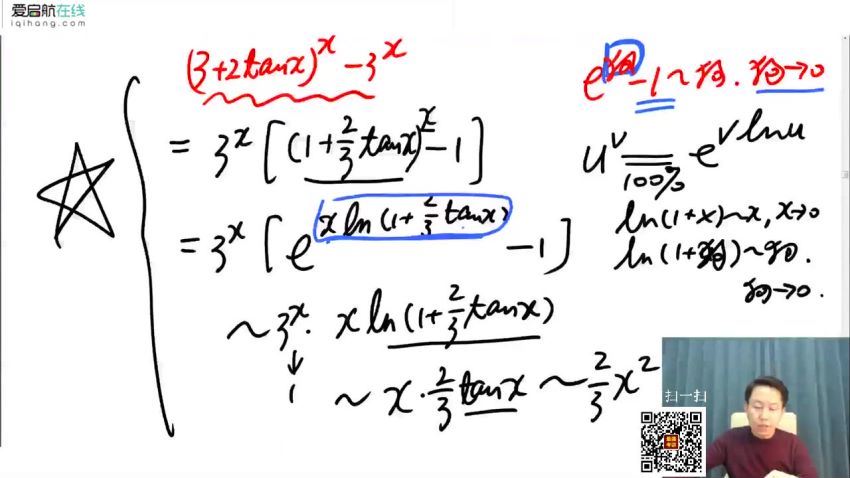 爱启航在线
iqihang.com
(3+2tanx)^x - 3^x
= 3^x [(1+2/3 tanx)^x - 1]
= 3^x [e^{x ln(1+2/3 tanx)} - 1]
~ 3^x · x ln(1+2/3 tanx)
↓
1
~ x · 2/3 tanx ~ 2/3 x^2
e^{狗} - 1 ~ 狗 . 狗→0
u^v = e^{v lnu}
100%
ln(1+x)~x, x→0
ln(1+狗)~狗.
狗→0.
扫一扫